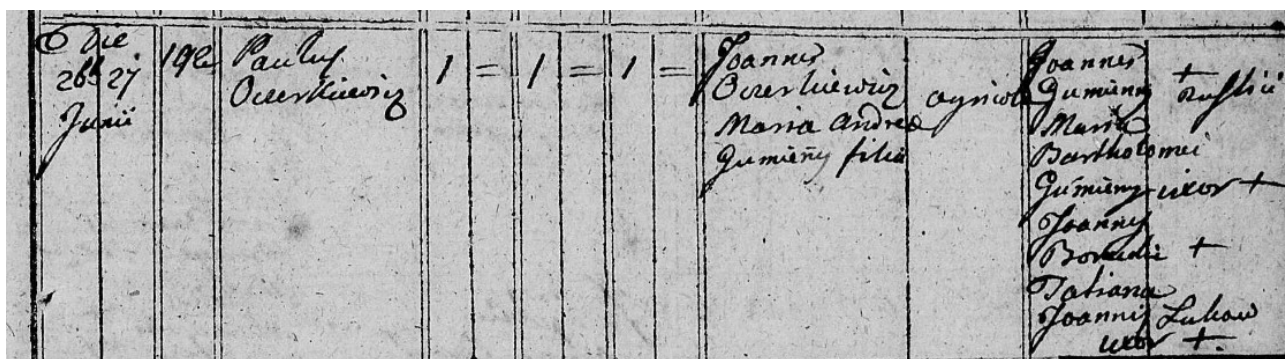 Die
26 27
Junii
192
Paulus
Oczerkiewicz
1 = 1 = 1 =
Joannes
Oczerkiewicz
Maria Andreæ
Gumieny filia
agricola
Joannes
Gumieny + rustici
Maria
Bartholomei
Gumieny uxor +
Joannes
+
Tatiana
Joannis Lukow
uxor +.